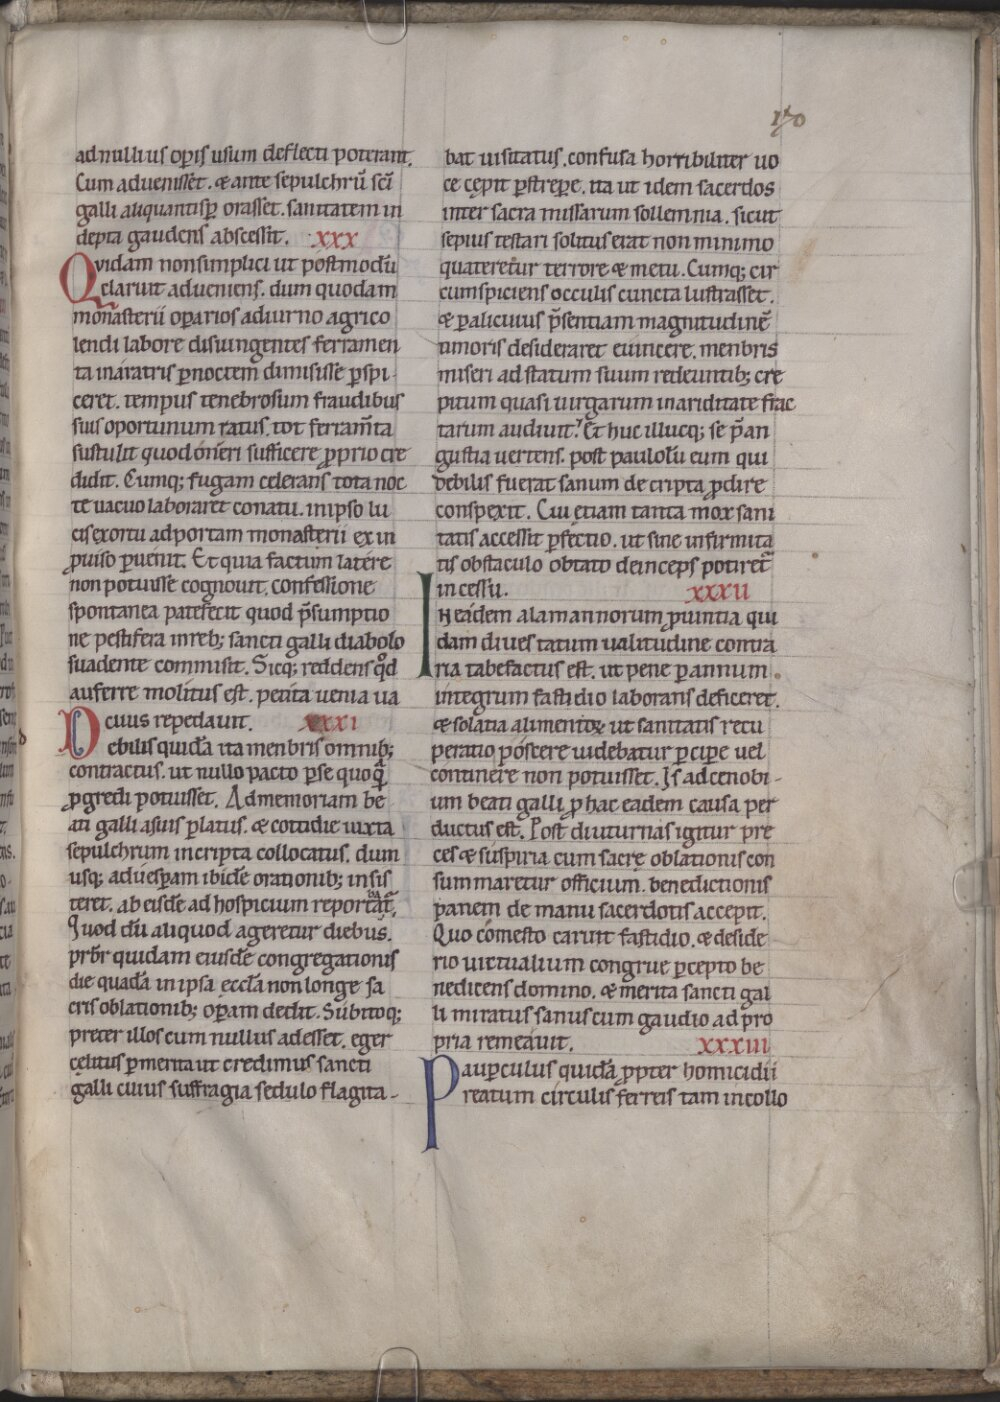 170
ad nullius op̄is usum deflecti poterant.
Cum aduenisset. & ante sepulchrū sc̄i
galli aliquantisp̄ orasset. sanitatem in
depta gaudens abscessit. xxx
Quidam non simplici ut postmodū
claruit adueniens. dum quodam
monasterii op̄arios a diurno agrico
lendi labore disiungentes ferramen
ta in aratris p̄ noctem dimisisse p̄spi
ceret. tempus tenebrosum fraudibus
suis oportunum ratus. tot ferram̄ta
sustulit quod oneri sufficere ꝓprio cre
didit. Cumq; fugam celerans tota noc
te uacuo laboraret conatu. in ipso lu
cis exortu ad portam monasterii ex in
ꝓuiso p̄uenit. Et quia factum latere
non potuisse cognouit. confessione
spontanea patefecit quod p̄sumptio
ne pestifera in reb; sancti galli diabolo
suadente commisit. Sicq; reddens qd̄
auferre molitus est. petita uenia ua
cuus repedauit. xxxi
Debilis quidā ita menbris omnib;
contractus. ut nullo pacto p̄ se quoquā
ꝓgredi potuisset. Ad memoriam be
ati galli a suis p̄latus. & cottidie iuxta
sepulchrum in cripta collocatus. dum
usq; ad uesp̄am ibidē orationib; insis
teret. ab eisdē ad hospicium reportabat᷑.
Quod dū aliquod ageretur diebus.
prb̄r quidam eiusdē congregationis
die quadā in ipsa eccl̄a non longe sa
cris oblationib; op̄am dedit. Subitoq;
preter illos cum nullus adesset. eger
cęlitus p̄ merita ut credimus sancti
galli cuius suffragia sedulo flagita-
bat uisitatus. confusa horribiliter uo
ce cępit p̄strep̄e. ita ut idem sacerdos
inter sacra missarum sollemnia. sicut
sepius testari solitus erat non minimo
quateretur terrore & metu. Cumq; cir
cumspiciens occulis cuncta lustrasset.
& p̄ alicuius p̄sentiam magnitudinē
timoris desideraret euincere. menbris
miseri ad statum suum redeuntib; cre
pitum quasi uirgarum in ariditate frac
tarum audiuit. Et huc illucq; se p̄ an
gustia uertens. post paulolū eum qui
debilis fuerat sanum de cripta ꝓdire
conspexit. Cui etiam tanta mox sani
tatis accessit p̄fectio. ut sine infirmita
tis obstaculo obtato deinceps potiret᷑
incessu. xxxii
IN eadem alamannorum ꝓuintia qui
dam diues tatum ualitudine contra
ria tabefactus est. ut pene p̄ annum
integrum fastidio laborans deficeret.
& solatia alimentoꝝ ut sanitatis recu
peratio poscere uidebatur p̄cip̄e uel
continere non potuisset. Is ad cenobi-
um beati galli ꝓ hac eadem causa per
ductus est. Post diuturnas igitur pre
ces & suspiria cum sacrę oblationis con
summaretur officium. benedictionis
panem de manu sacerdotis accepit.
Quo comesto caruit fastidio. & deside
rio uictualium congrue p̄cepto be
nedicens domino. & merita sancti gal
li miratus sanus cum gaudio ad pro
pria remeauit. xxxiii
Paup̄culus quidā ꝓpter homicidii
reatum circulis ferreis tam in collo